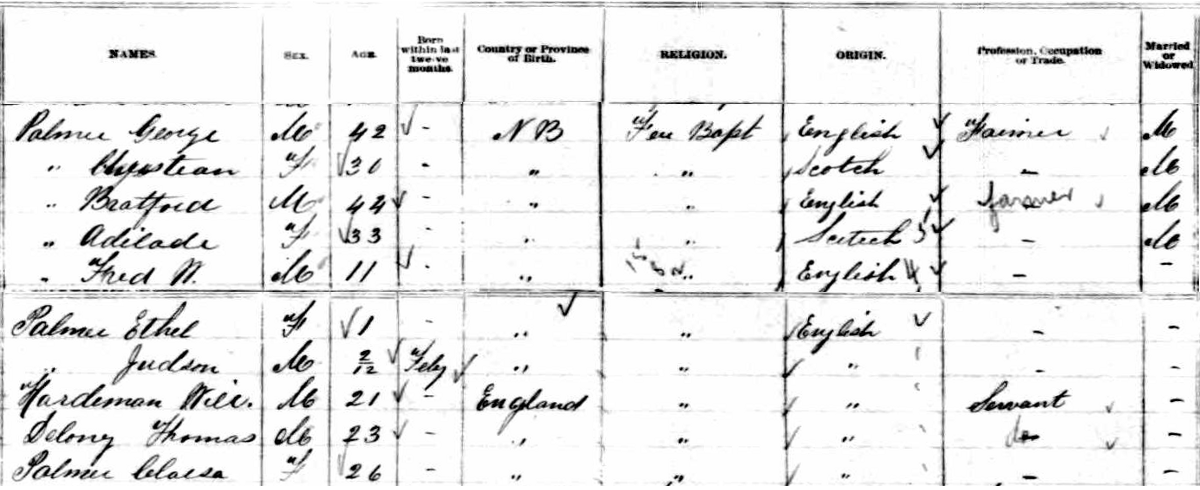 NAMES. SEX. AGE. Born within last twelve months. Country or Province of Birth. RELIGION. ORIGIN. Profession, Occupation or Trade. Married or Widowed
Palmer George M 42 - N B Free Bapt English Farmer M
" F 30 - " " Scotch - M
" Bratford M 44 - " " English farmer M
" Adilade F 33 - " " Scotch 5 - M
" Fred W. M 11 - " " English 4 - -
Palmer Ethel F 1 - " " English - -
" Judson M 2/12 Feby " " " - -
Hardeman Will. M 21 - England " " Servant -
Delony Thomas M 23 - " " " do -
Palmer F 26 - " " " - -